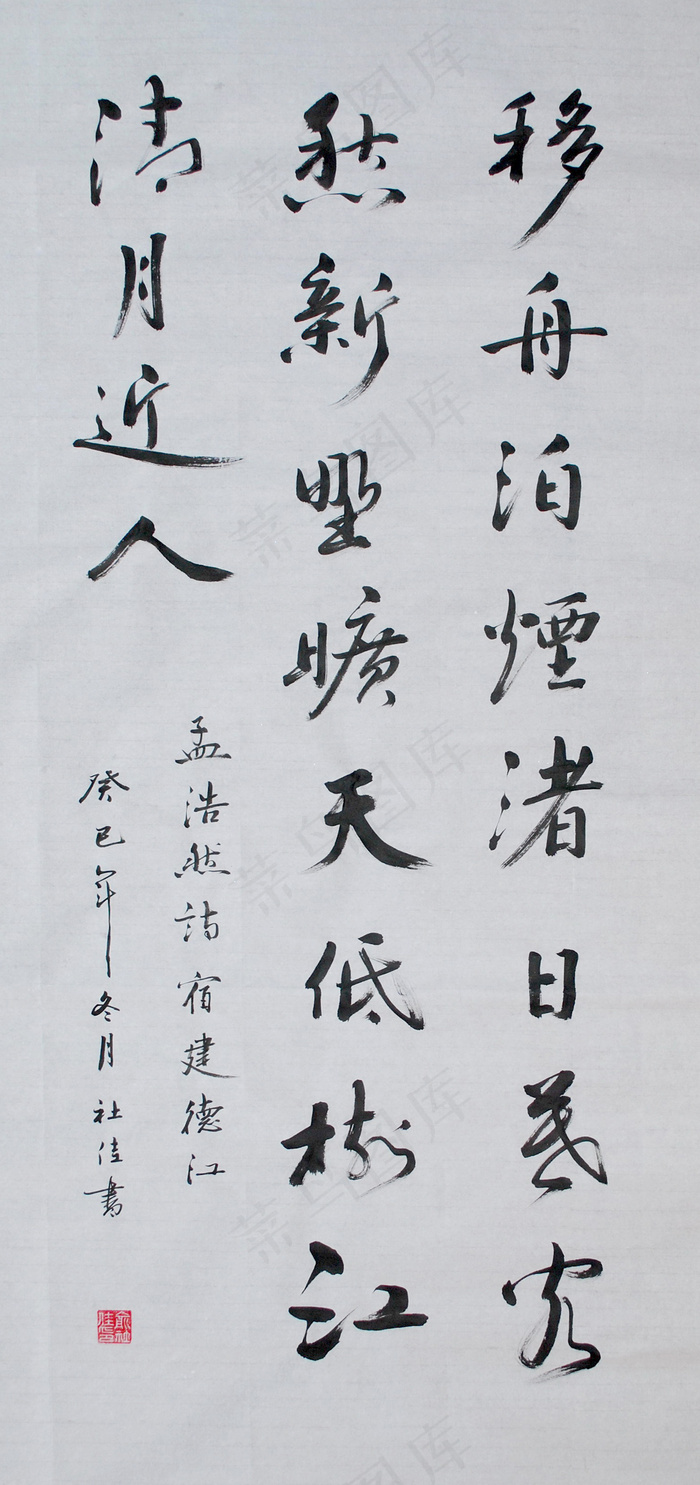 移舟泊煙渚日暮客
愁新野曠天低樹江
清月近人
孟浩然詩宿建德江
癸巳年冬月社佳書
菜鸟图库